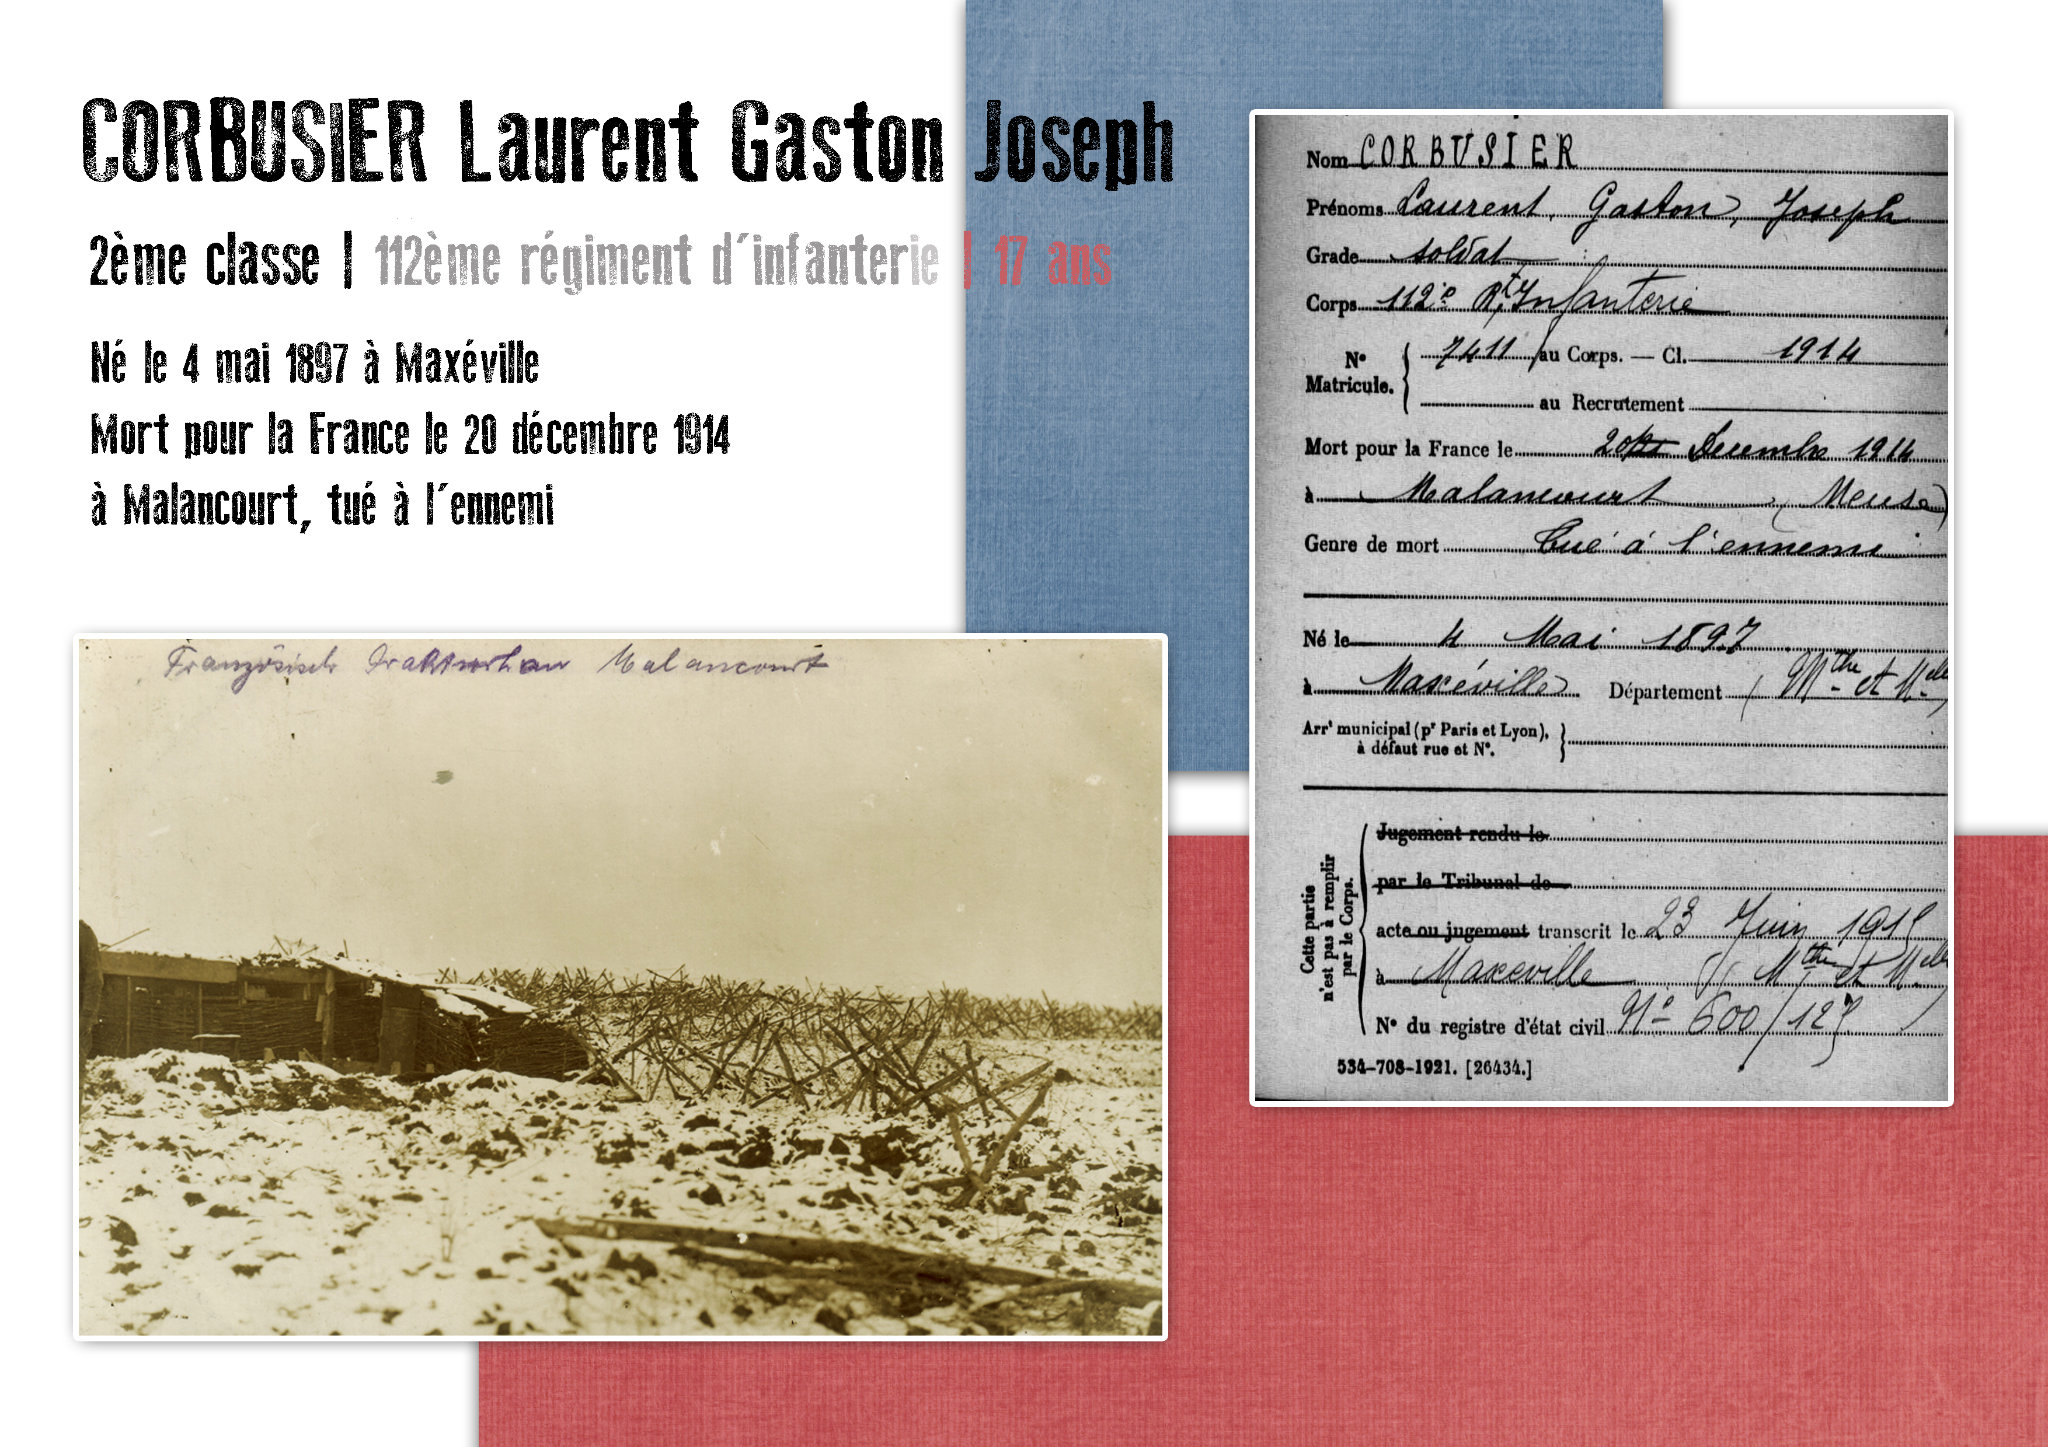 CORBUSIER Laurent Gaston Joseph
2ème classe | 112ème régiment d´infanterie | 17 ans
Né le 4 mai 1897 à Maxéville
Mort pour la France le 20 décembre 1914
à Malancourt, tué à l´ennemi
Französisch Malancourt
Nom CORBUSIER
Prénoms Laurent, Gaston, Joseph
Grade soldat
Corps 112e Rt Infanterie
N° Matricule. 7411 au Corps. — Cl. 1914
au Recrutement
Mort pour la France le 20 Decembre 1914
à Malancourt (Meuse)
Genre de mort tué à l'ennemi
Né le 4 Mai 1897
à Maxéville Département (Mthe et Melle
Arrt municipal (pr Paris et Lyon),
à défaut rue et N°.
Cette partie
n'est pas à remplir
par le Corps.
Jugement rendu le
par le Tribunal de
acte ou jugement transcrit le 23 Juin 1915
à Maxeville (Mthe et Melle
N° du registre d'état civil N° 600/125
534-708-1921. [26434.]